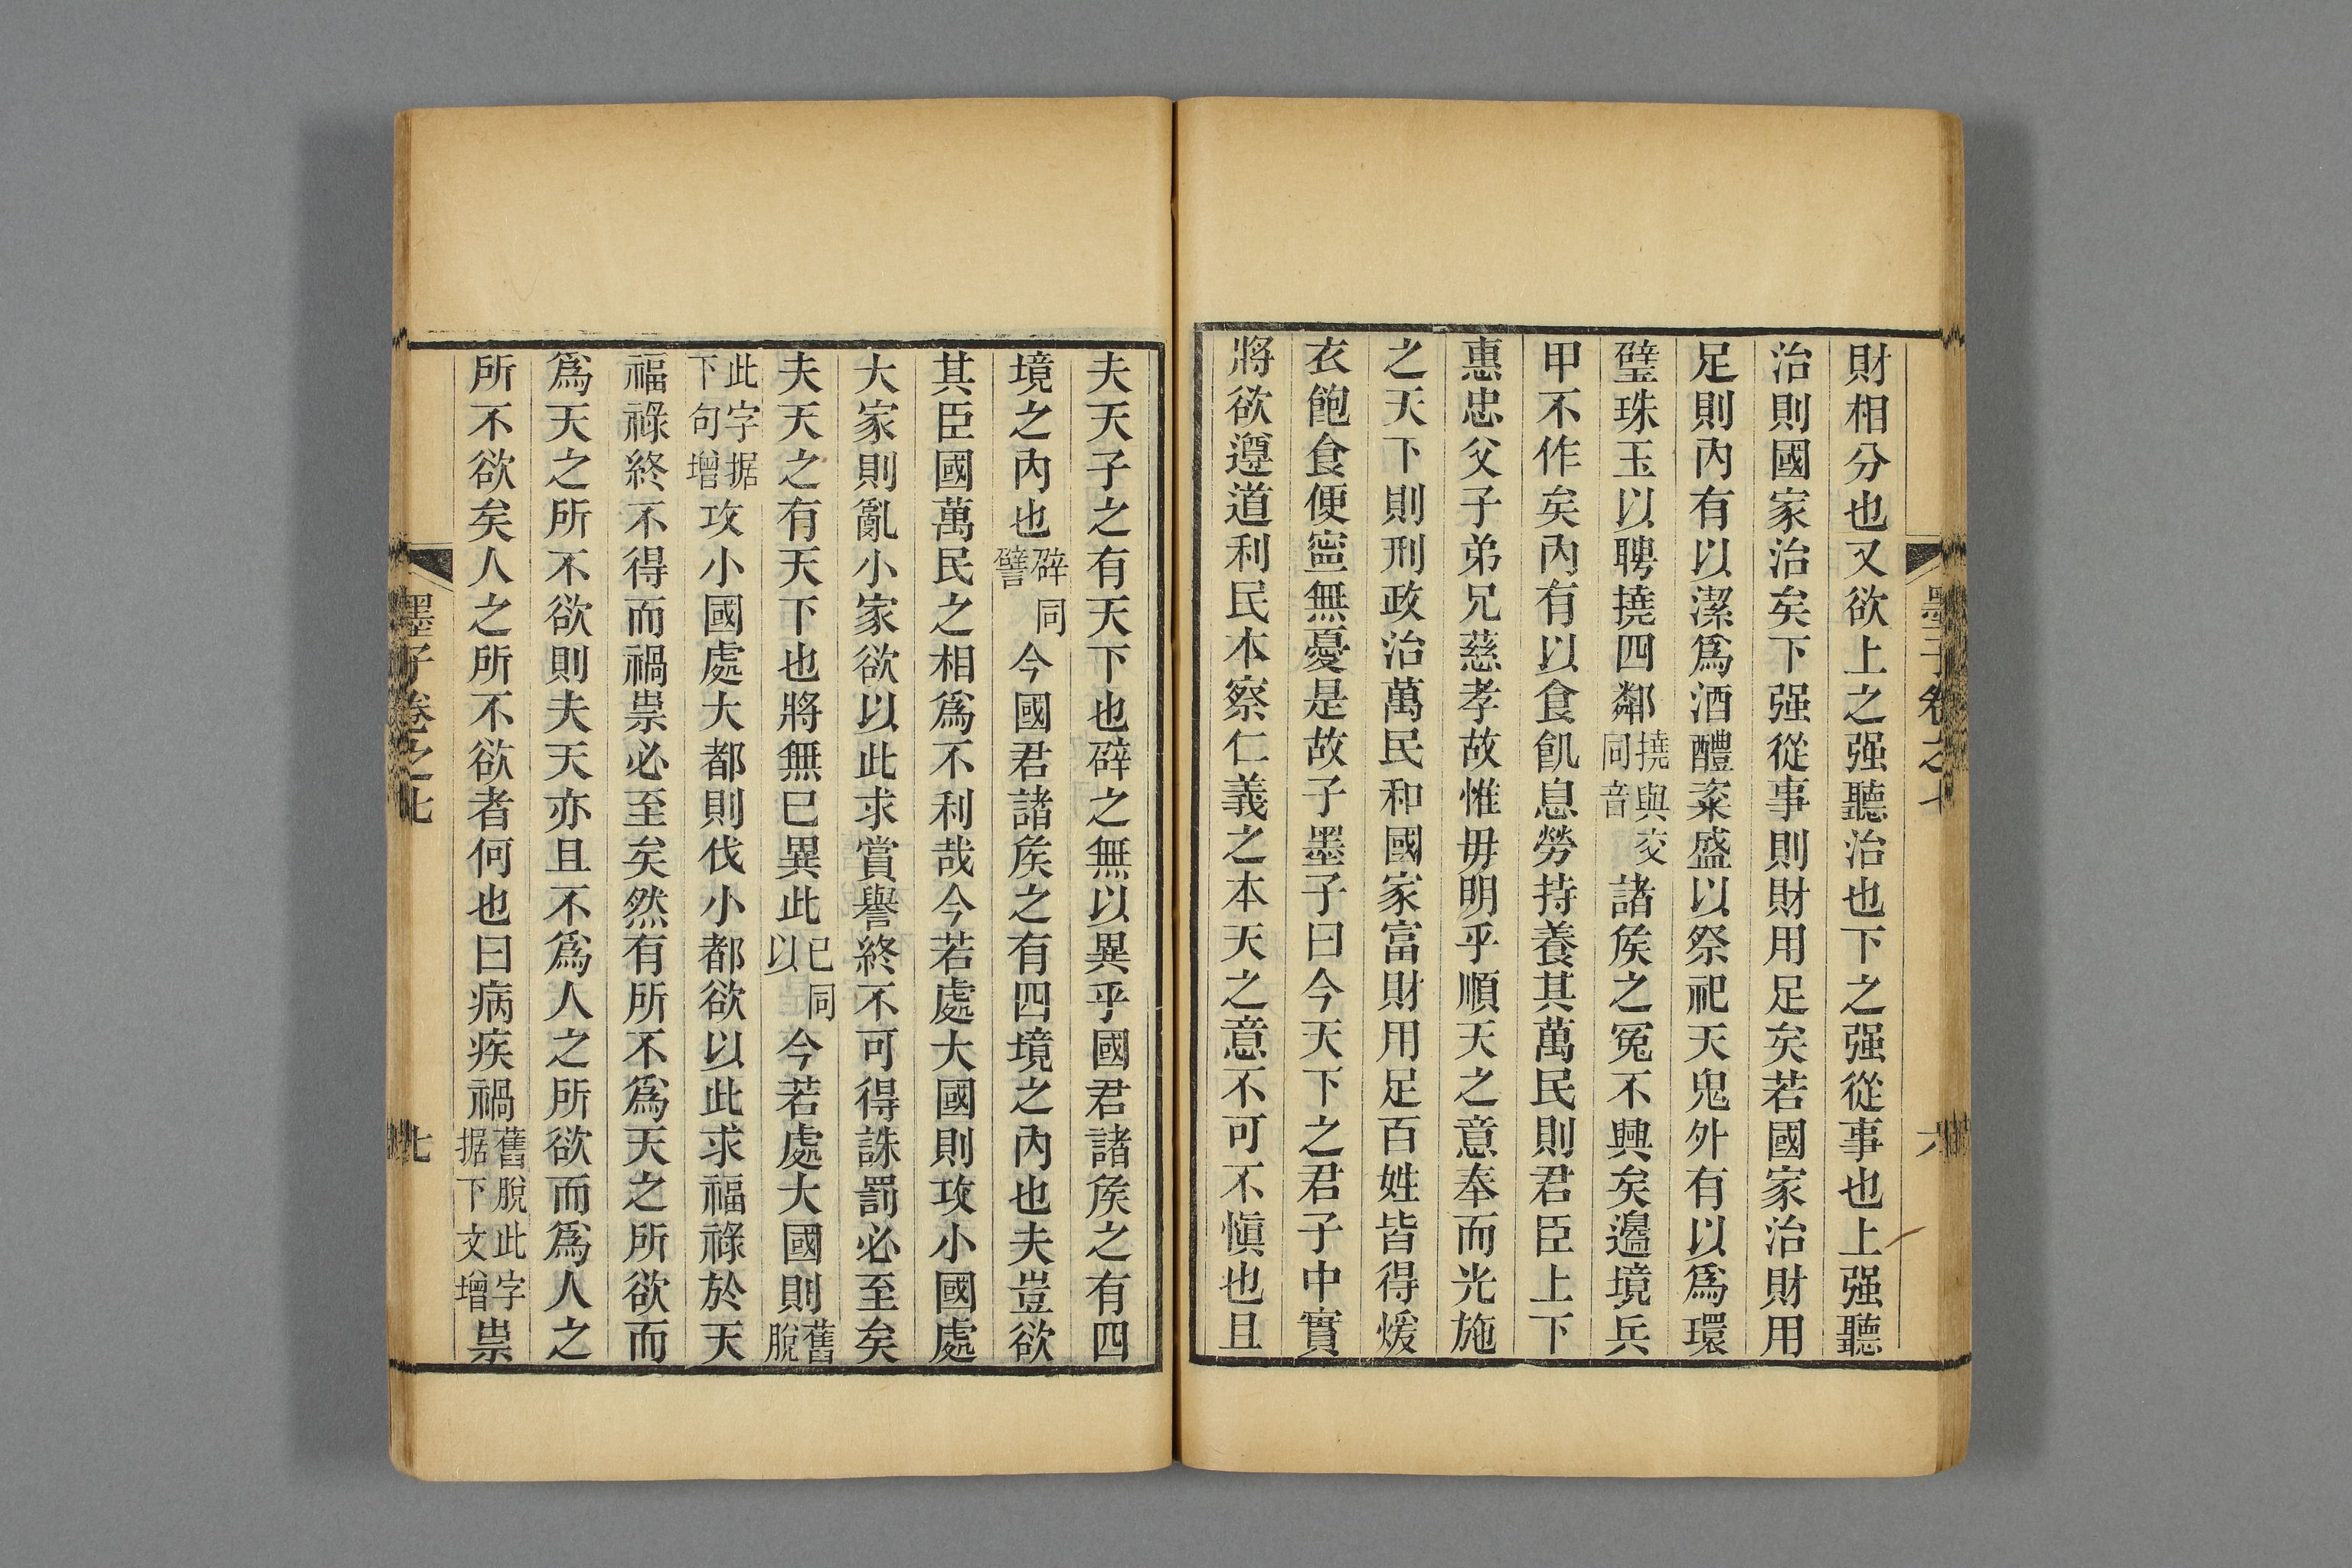 墨子卷之七
六
財相分也又欲上之强聽治也下之强從事也上强聽
治則國家治矣下强從事則財用足矣若國家治財用
足則內有以潔爲酒醴粢盛以祭祀天鬼外有以爲環
璧珠玉以聘撓四鄰撓與交同音諸矦之冤不興矣邊境兵
甲不作矣內有以食飢息勞持養其萬民則君臣上下
惠忠父子弟兄慈孝故惟毋明乎順天之意奉而光施
之天下則刑政治萬民和國家富財用足百姓皆得煖
衣飽食便寍無憂是故子墨子曰今天下之君子中實
將欲遵道利民本察仁義之本天之意不可不愼也且
夫天子之有天下也辟之無以異乎國君諸矦之有四
境之內也辟同譬今國君諸矦之有四境之內也夫豈欲
其臣國萬民之相爲不利哉今若處大國則攻小國處
大家則亂小家欲以此求賞譽終不可得誅罰必至矣
夫天之有天下也將無已異此已同以今若處大國則舊脫
此字据下句增攻小國處大都則伐小都欲以此求福祿於天
福祿終不得而禍祟必至矣然有所不爲天之所欲而
爲天之所不欲則夫天亦且不爲人之所欲而爲人之
所不欲矣人之所不欲者何也曰病疾禍舊脫此字据下文增祟
墨子卷之七
七